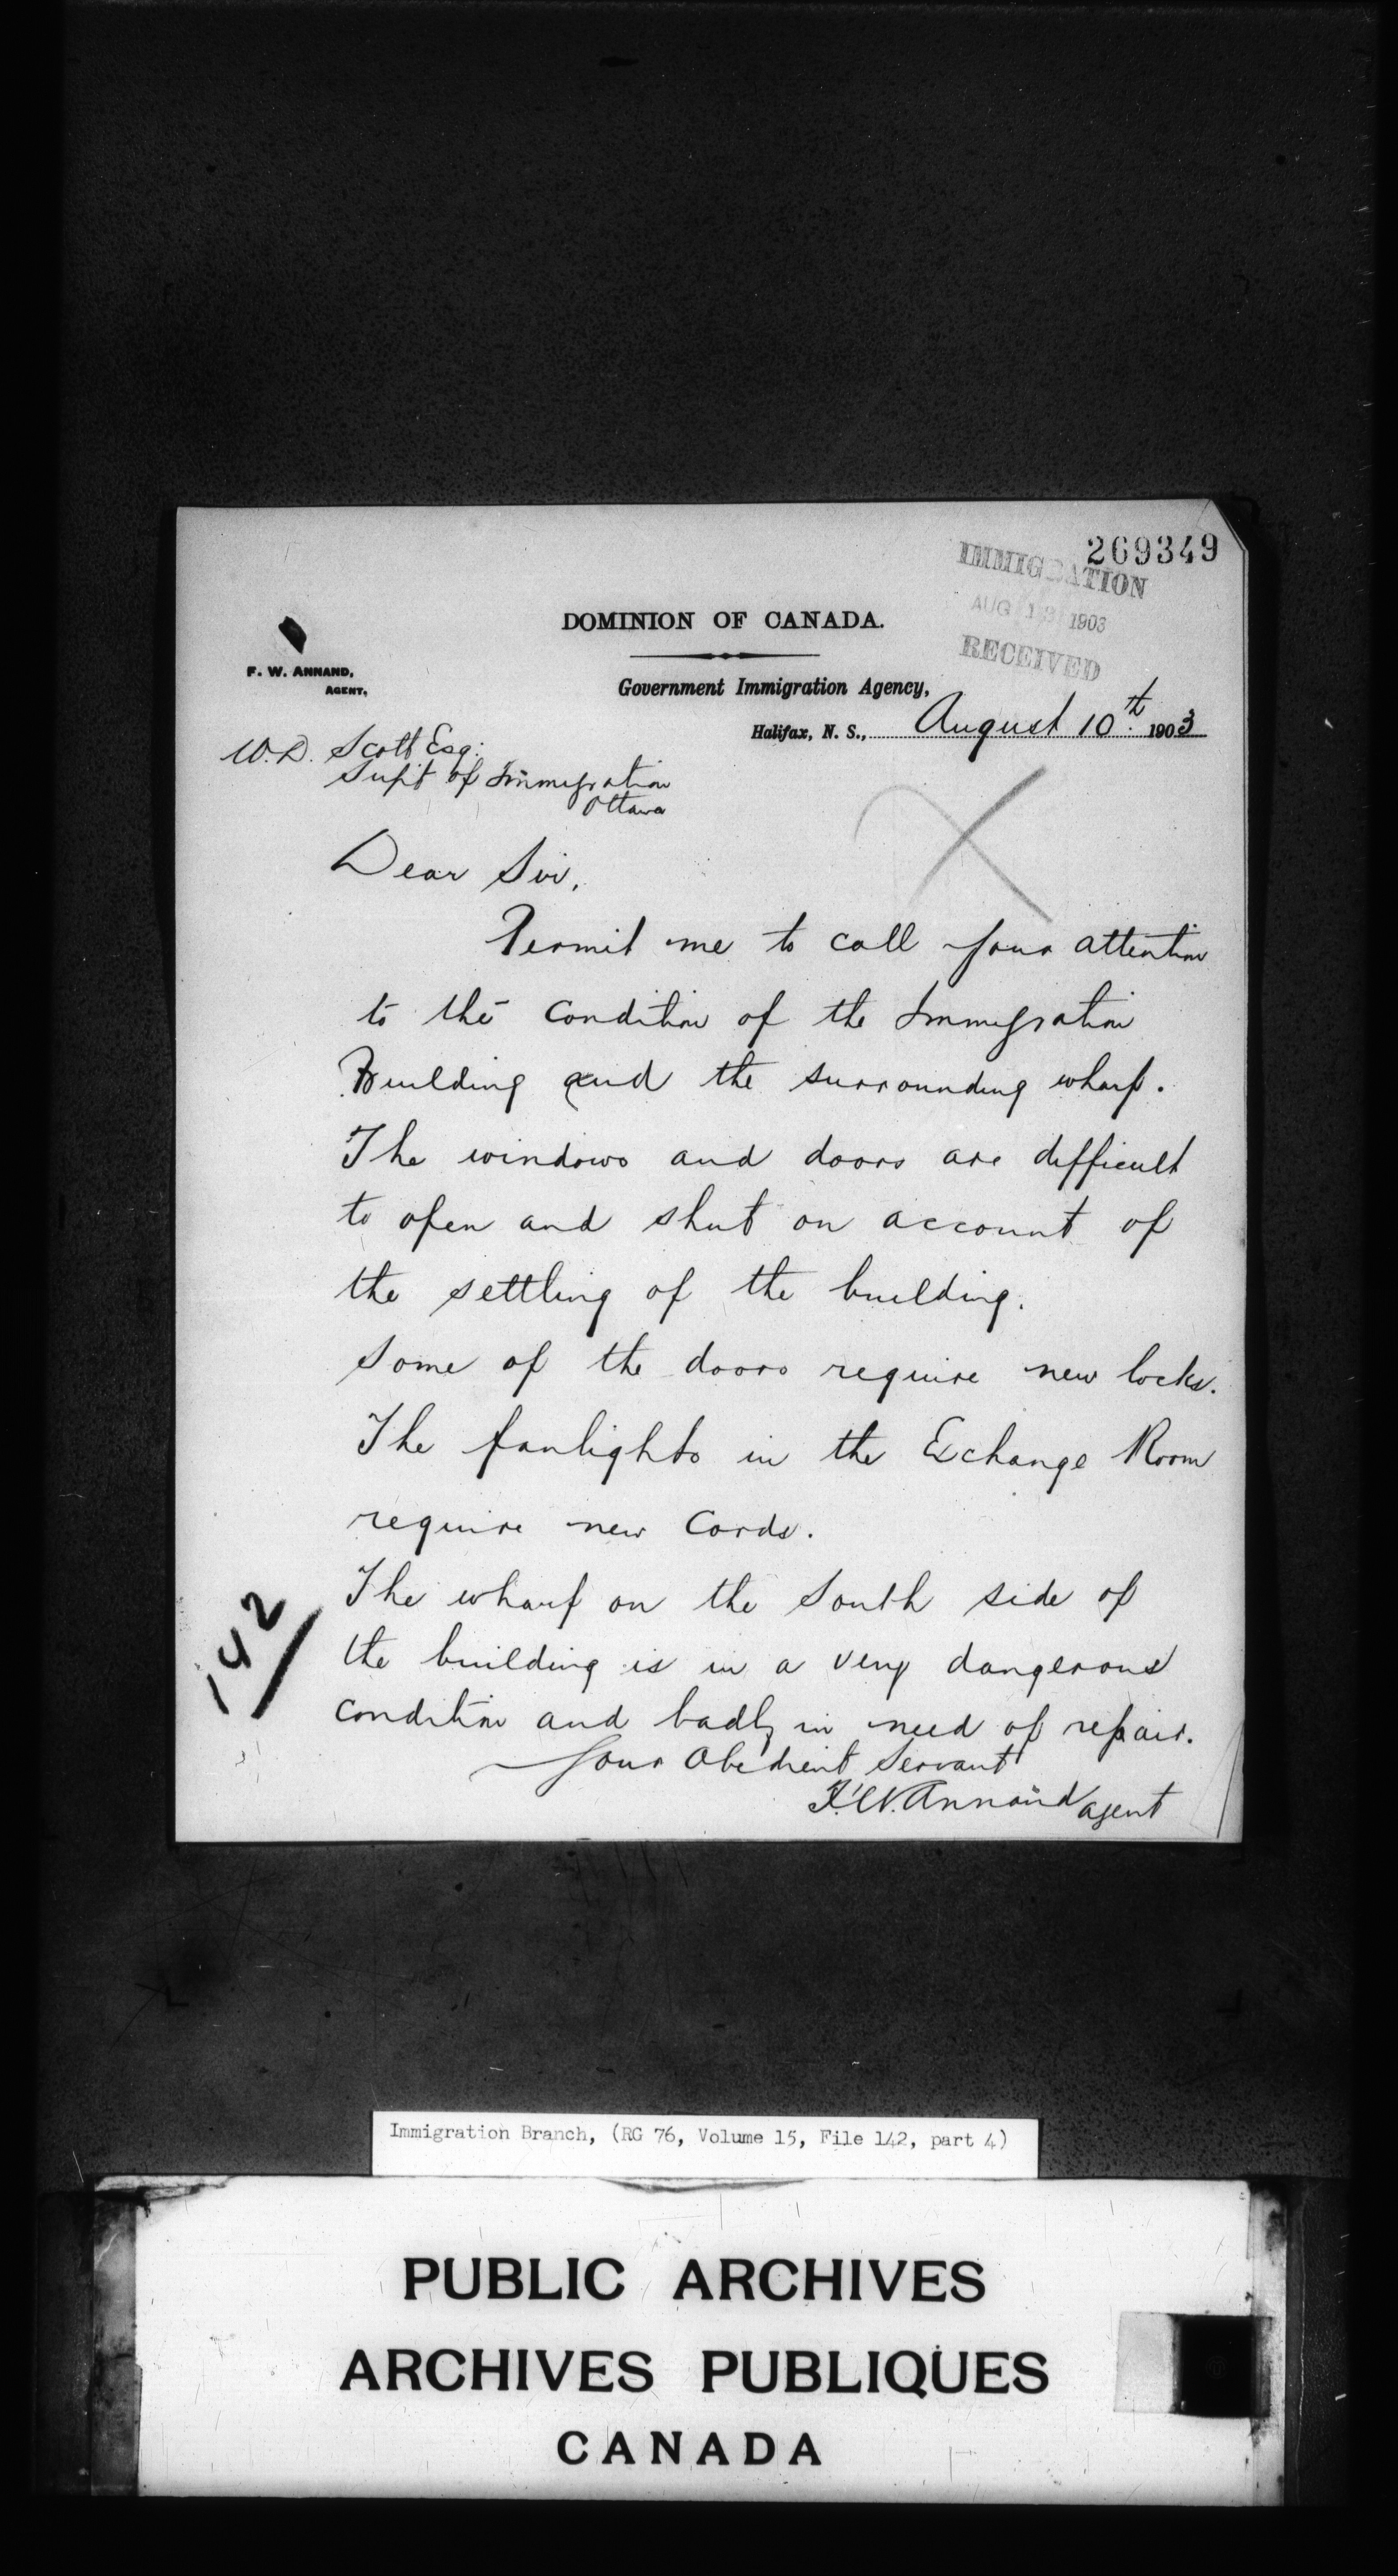 269349
IMMIGRATION
AUG 13 1903
RECEIVED
DOMINION OF CANADA.
F. W. ANNAND,
AGENT,
Government Immigration Agency,
Halifax, N. S., August 10th. 1903
W. D. Scott Esq.
Supt of Immigration
Ottawa
Dear Sir,
Permit me to call your attention
to the condition of the Immigration
Building and the surrounding wharf.
The windows and doors are difficult
to open and shut on account of
the settling of the building.
Some of the doors require new locks.
The fanlights in the Exchange Room
require new Cords.
The wharf on the South side of
the building is in a very dangerous
condition and badly in need of repair.
Your Obedient Servant
F. W. Annand agent
142
Immigration Branch, (RG 76, Volume 15, File 142, part 4)
PUBLIC ARCHIVES
ARCHIVES PUBLIQUES
CANADA